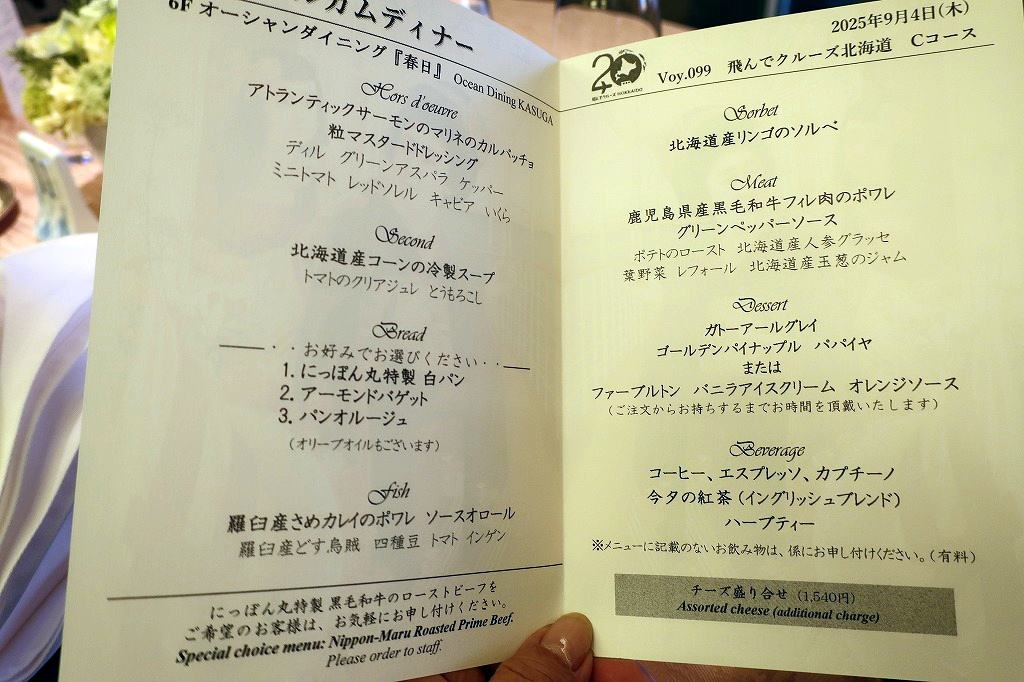 ルカムディナー
6F オーシャンダイニング『春日』 Ocean Dining KASUGA
Hors d'oeuvre
アトランティックサーモンのマリネのカルパッチョ
粒マスタードドレッシング
ディル グリーンアスパラ ケッパー
ミニトマト レッドソレル キャビア いくら
Second
北海道産コーンの冷製スープ
トマトのクリアジュレ とうもろこし
Bread
・・お好みでお選びください・・
1. にっぽん丸特製 白パン
2. アーモンドバゲット
3. パンオルージュ
(オリーブオイルもございます)
Fish
羅臼産さめカレイのポワレ ソースオロール
羅臼産どす烏賊 四種豆 トマト インゲン
にっぽん丸特製 黒毛和牛のローストビーフを
ご希望のお客様は、お気軽にお申し付けください。
Special choice menu: Nippon-Maru Roasted Prime Beef.
Please order to staff.
2025年9月4日(木)
20 Voy.099 飛んでクルーズ北海道 Cコース
Sorbet
北海道産リンゴのソルベ
Meat
鹿児島県産黒毛和牛フィレ肉のポワレ
グリーンペッパーソース
ポテトのロースト 北海道産人参グラッセ
葉野菜 レフォール 北海道産玉葱のジャム
Dessert
ガトーアールグレイ
ゴールデンパイナップル パパイヤ
または
ファーブルトン バニラアイスクリーム オレンジソース
(ご注文からお持ちするまでお時間を頂戴いたします)
Beverage
コーヒー、エスプレッソ、カプチーノ
今夕の紅茶 (イングリッシュブレンド)
ハーブティー
※メニューに記載のないお飲み物は、係にお申し付けください。(有料)
チーズ盛り合せ (1,540円)
Assorted cheese (additional charge)